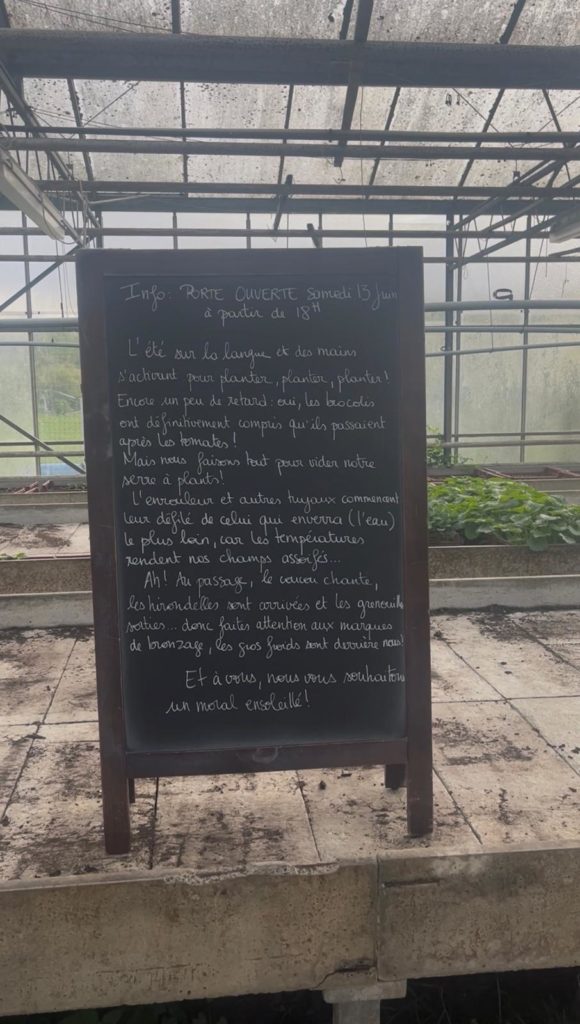 Info: PORTE OUVERTE Samedi 13 Juin
à partir de 18H
L'été sur la langue et des mains
s'activant pour planter, planter, planter!
Encore un peu de retard: oui, les brocolis
ont définitivement compris qu'ils passaient
après les tomates!
Mais nous faisons tout pour vider notre
serre à plants!
L'enrouleur et autres tuyaux commencent
leur défilé de celui qui enverra (l'eau)
le plus loin, car les températures
rendent nos champs assoifés...
Ah! Au passage, le coucou chante,
les hirondelles sont arrivées et les grenouilles
sorties... donc faites attention aux marques
de bronzage, les gros froids sont derrière nous!
Et à vous, nous vous souhaitons
un moral ensoleillé!